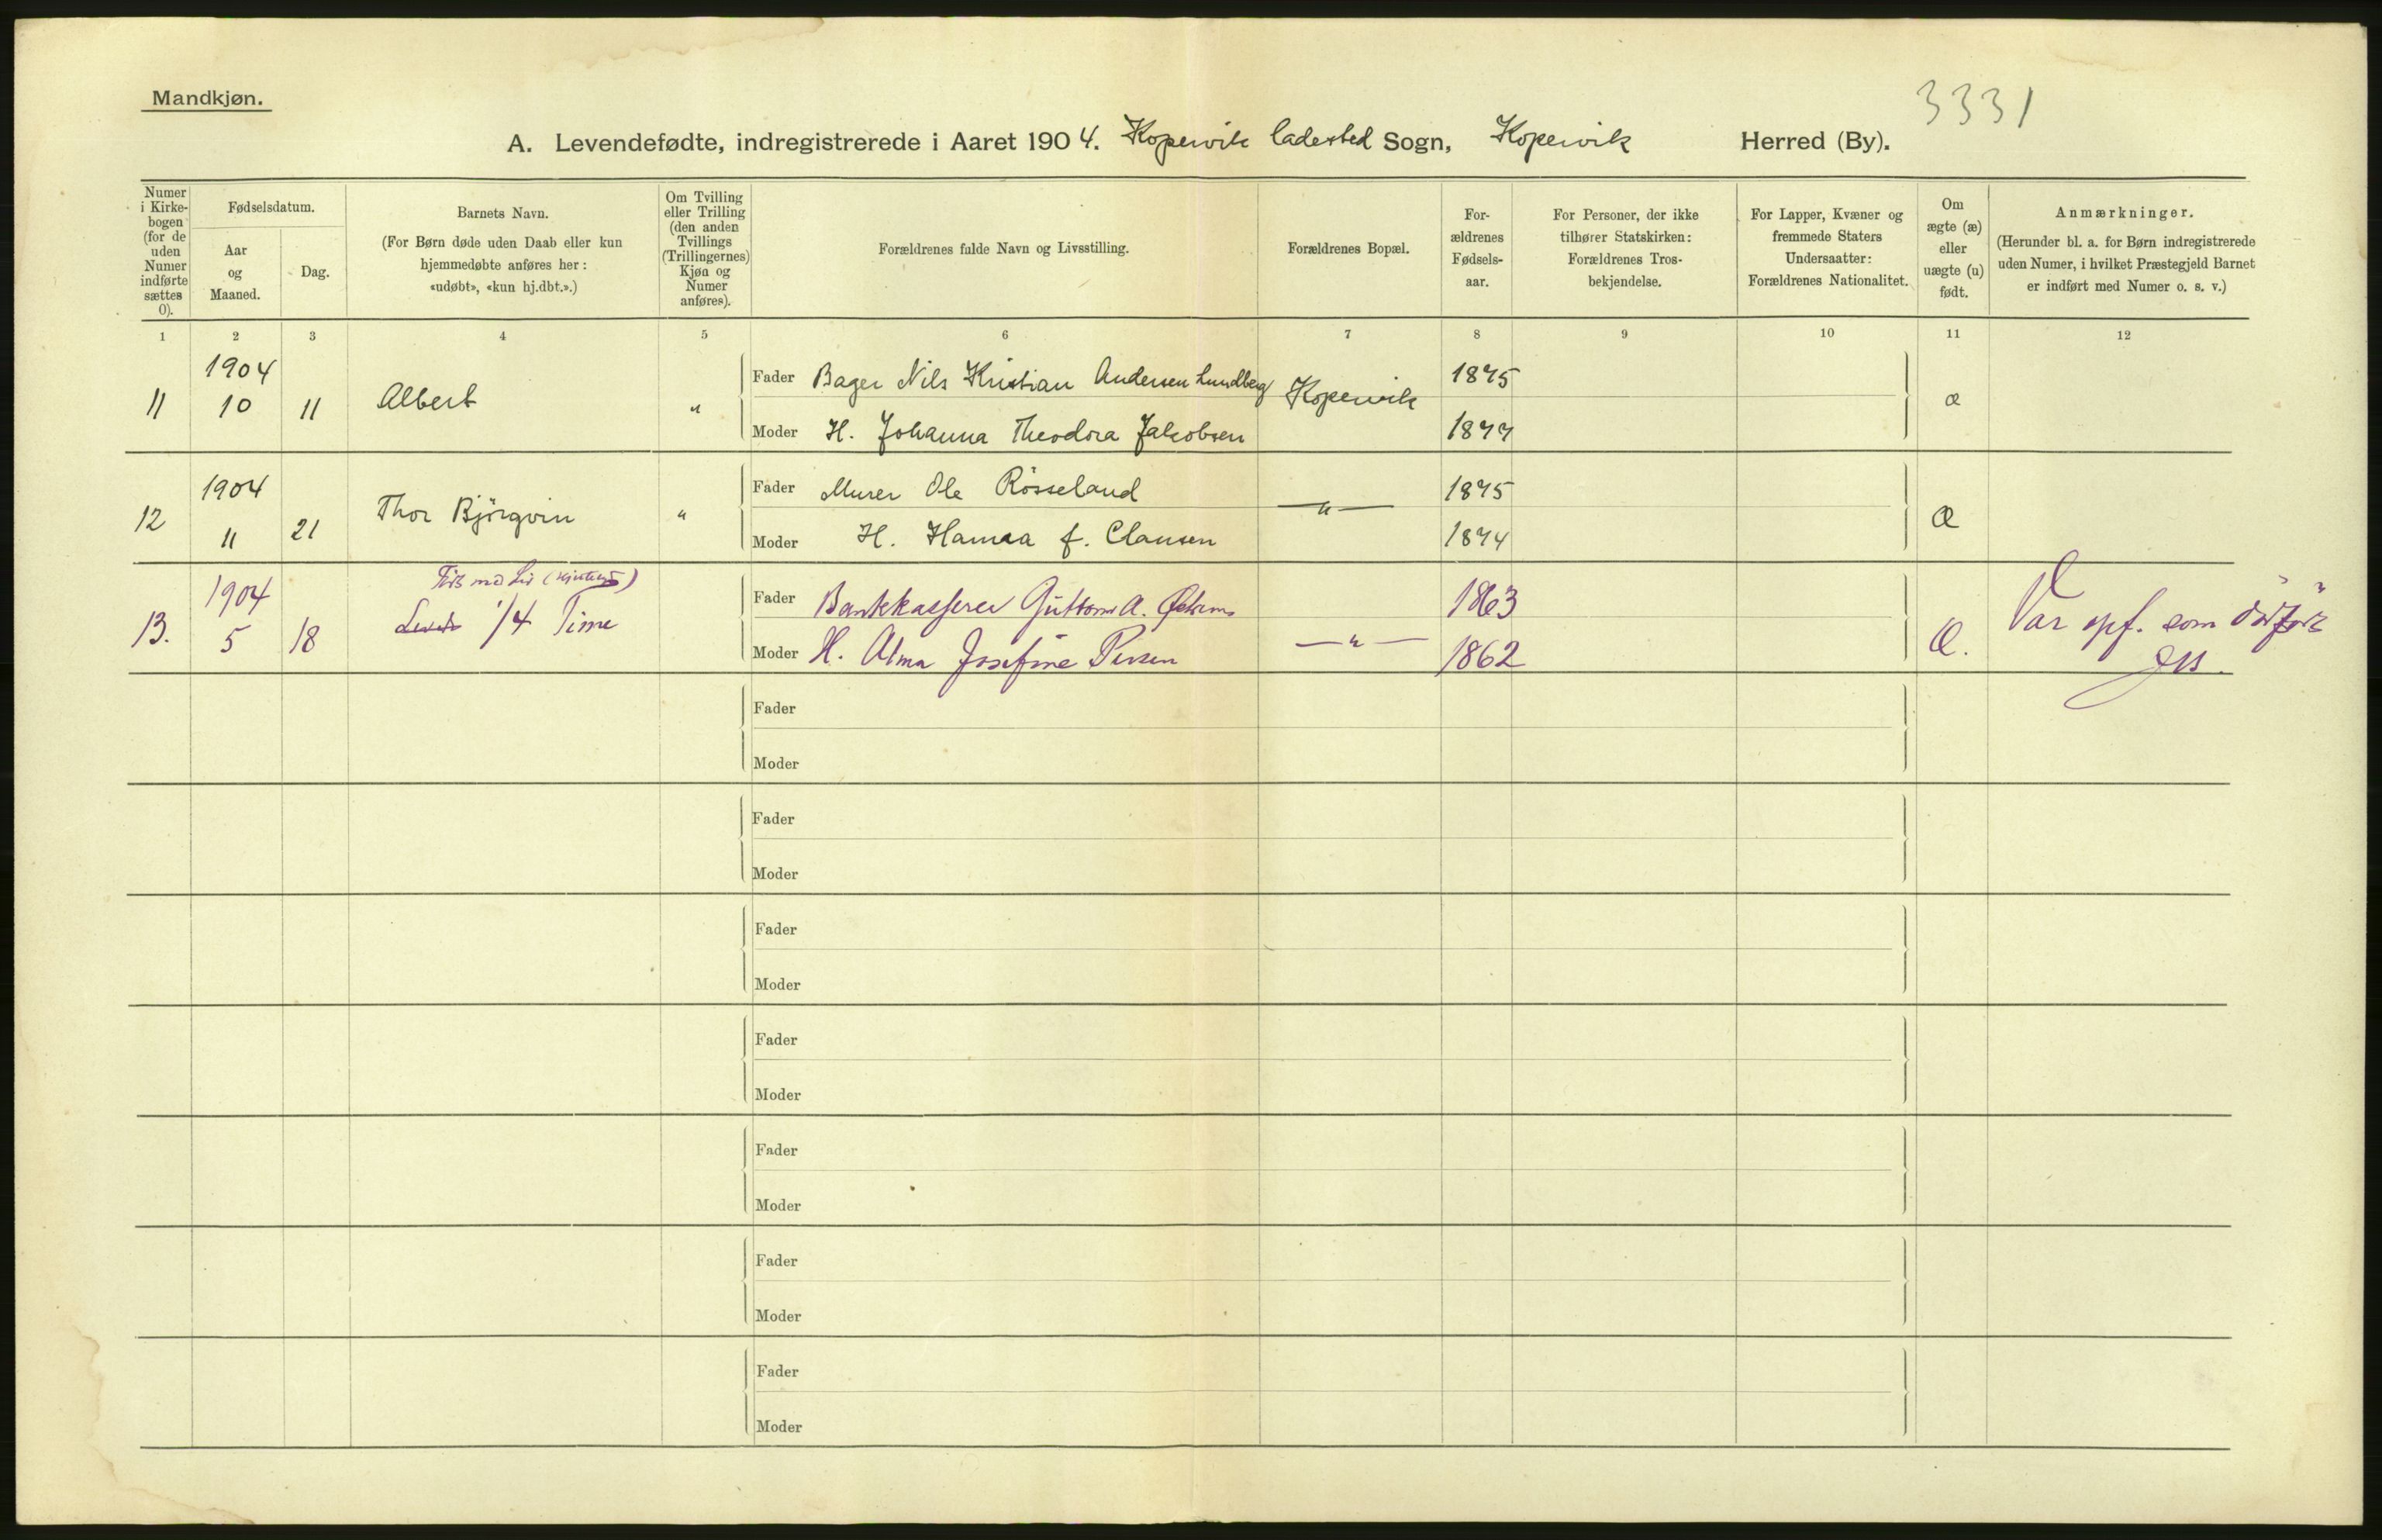 Mandkjøn.
3331
A. Levendefødte, indregistrerede i Aaret 1904. Kopervik ladested Sogn, Kopervik Herred (By).
Numer i Kirke-bogen (for de uden Numer indførte sættes 0).
Fødselsdatum.
Aar og Maaned.
Dag.
Barnets Navn.
(For Børn døde uden Daab eller kun hjemmedøbte anføres her: «udøbt», «kun hj.dbt.».)
Om Tvilling eller Trilling (den anden Tvillings (Trillingernes) Kjøn og Numer anføres).
Forældrenes fulde Navn og Livsstilling.
Forældrenes Bopæl.
For-ældrenes Fødsels-aar.
For Personer, der ikke tilhører Statskirken: Forældrenes Tros-bekjendelse.
For Lapper, Kvæner og fremmede Staters Undersaatter: Forældrenes Nationalitet.
Om ægte (æ) eller uægte (u) født.
Anmærkninger.
(Herunder bl. a. for Børn indregistrerede uden Numer, i hvilket Præstegjeld Barnet er indført med Numer o. s. v.)
1 2 3 4 5 6 7 8 9 10 11 12
11 1904 10 11 Albert " Fader Bager Nils Kristian Andersen Lundberg Kopervik 1875 æ
Moder H. Johanna Theodora Jakobsen 1877
12 1904 11 21 Thor Björgvin " Fader Murer Ole Rösseland —"— 1875 Æ
Moder H. Hanna f. Clausen 1874
13. 1904 5 18 1/4 Time Fader Bankkasserer Guttorm A. —"— 1863 Æ. Var opf. som dødfødt
Moder H. Alma Josefine Persen 1862
Fader
Moder
Fader
Moder
Fader
Moder
Fader
Moder
Fader
Moder
Fader
Moder
Fader
Moder